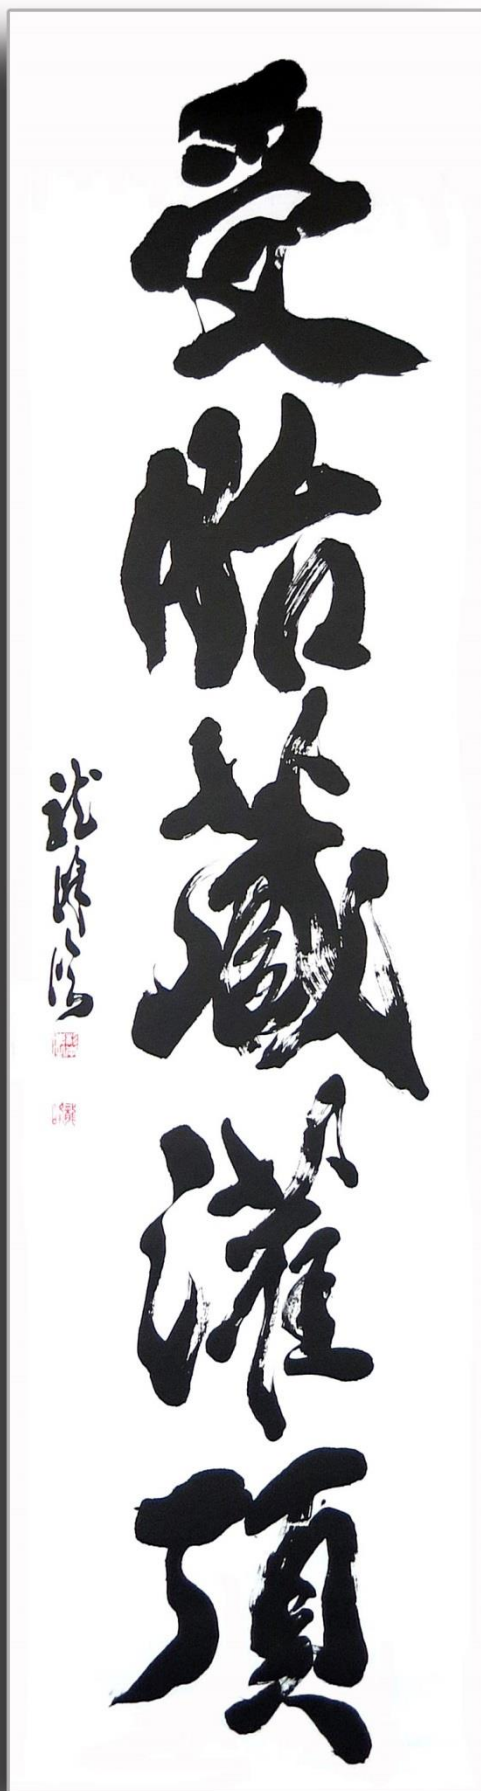 受胎藏灌頂